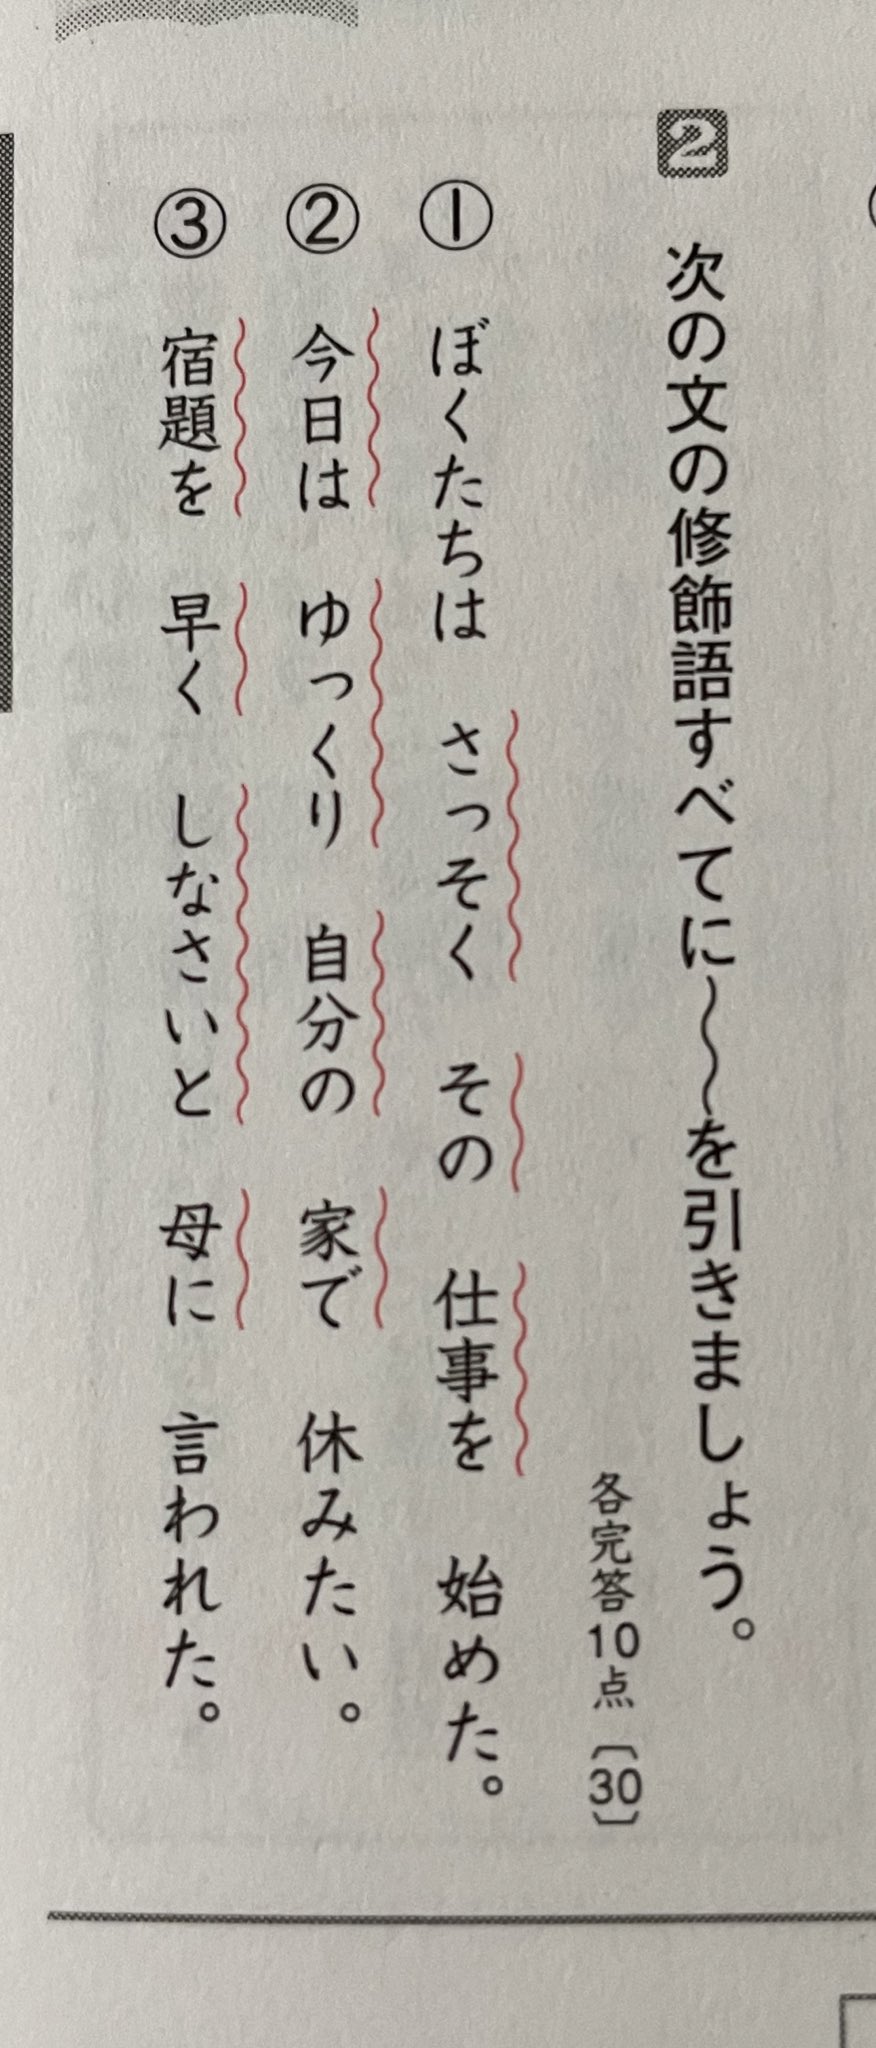 2 次の文の修飾語すべてに〜〜を引きましょう。
各完答10点〔30〕
① ぼくたちは さっそく その 仕事を 始めた。
② 今日は ゆっくり 自分の 家で 休みたい。
③ 宿題を 早く しなさいと 母に 言われた。